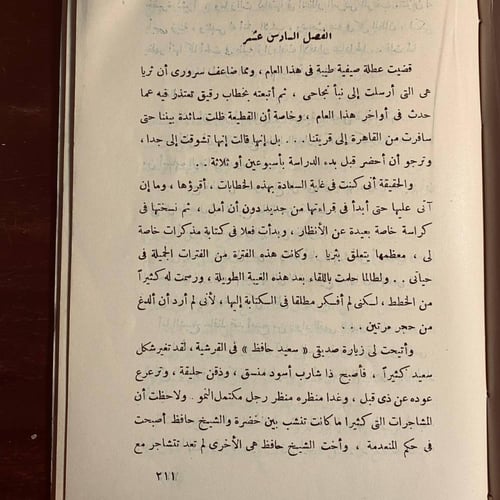 الفصل السادس عشر
قضيت عطلة صيفية طيبة فى هذا العام ، ومما ضاعف سرورى أن ثريا
هى التى أرسلت إلى نبأ نجاحى ، ثم أتبعته بخطاب رقيق تعتذر فيه عما
حدث فى أواخر هذا العام ، وخاصة أن القطيعة ظلت سائدة بيننا حتى
سافرت من القاهرة إلى قريتنا . . . بل إنها قالت إنها تشوقت إلى جدا ،
وترجو أن أحضر قبل بدء الدراسة بأسبوعين أو ثلاثة . .
والحقيقة أنى كنت فى غاية السعادة بهذه الخطابات ، أقرؤها ، وما إن
آتى عليها حتى أبدأ فى قراءتها من جديد دون أن أمل ، ثم نسختها فى
كراسة خاصة بعيدة عن الأنظار ، وبدأت فعلا فى كتابة مذكرات خاصة
لى ، معظمها يتعلق بثريا . وكانت هذه الفترة من الفترات الجميلة فى
حياتى . . ولطالما حلمت باللقاء بعد هذه الغيبة الطويلة ، ورسمت له كثيراً
من الخطط ، لكنى لم أفكر مطلقا فى الكتابة إليها ، لأنى لم أرد أن ألدغ
من حجر مرتين . . .
وأتيحت لى زيارة صديقى « سعيد حافظ » فى القرشية ، لقد تغير شكل
سعيد كثيراً ، فأصبح ذا شارب أسود منسق ، وذقن حليقة ، وترعرع
عوده عن ذى قبل ، وغدا منظره منظر رجل مكتمل النمو . ولاحظت أن
المشاجرات التى كثيرا ما كانت تنشب بين خضرة والشيخ حافظ أصبحت
فى حكم المنعدمة . وأخت الشيخ حافظ هى الأخرى لم تعد تتشاجر مع
٢١١